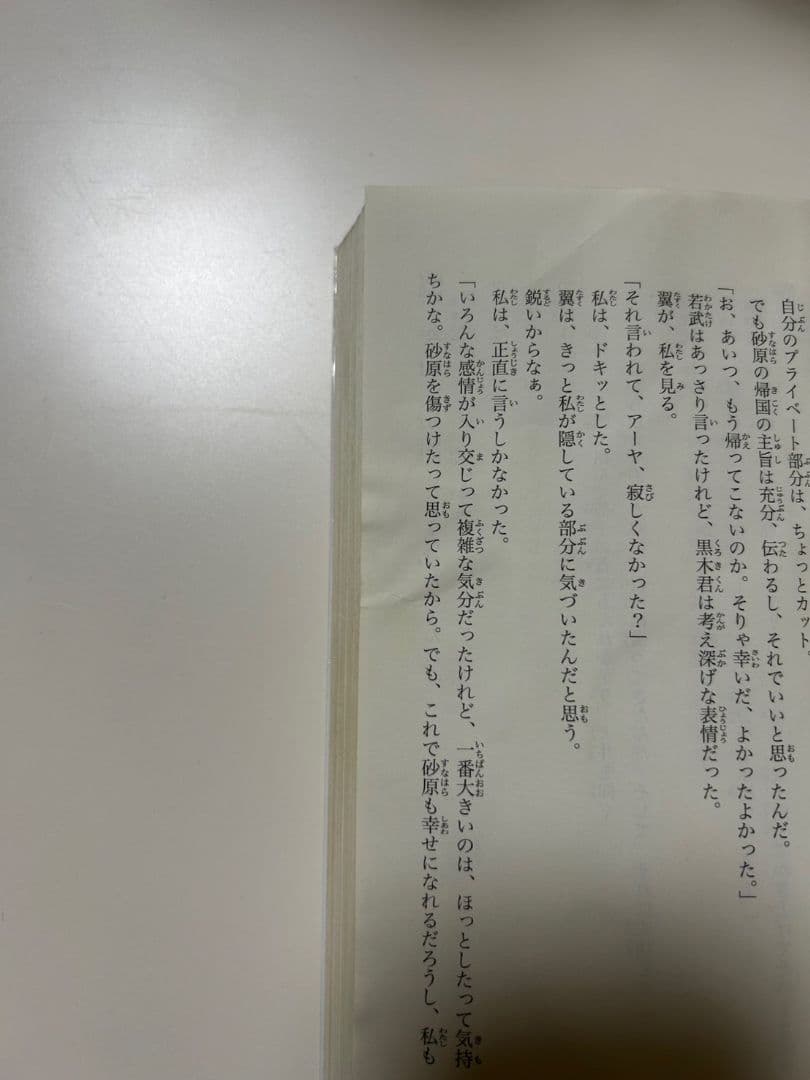 自分のプライベート部分は、ちょっとカット。
でも砂原の帰国の主旨は充分、伝わるし、それでいいと思ったんだ。
「お、あいつ、もう帰ってこないのか。そりゃ幸いだ、よかったよかった。」
若武はあっさり言ったけれど、黒木君は考え深げな表情だった。
翼が、私を見る。
「それ言われて、アーヤ、寂しくなかった?」
私は、ドキッとした。
翼は、きっと私が隠している部分に気づいたんだと思う。
鋭いからなぁ。
私は、正直に言うしかなかった。
「いろんな感情が入り交じって複雑な気分だったけれど、一番大きいのは、ほっとしたって気持
ちかな。砂原を傷つけたって思っていたから。でも、これで砂原も幸せになれるだろうし、私も